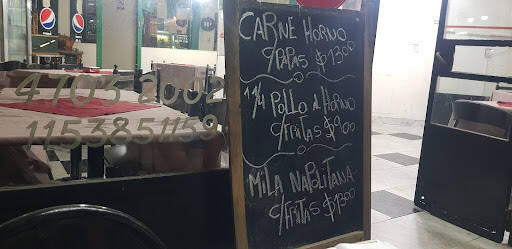 CARNE HORNO
C/PAPAS $1300
1/4 POLLO AL HORNO
C/FRITAS $900
MILA NAPOLITANA
C/FRITAS $1300
4703-2002
1153851139
pepsi